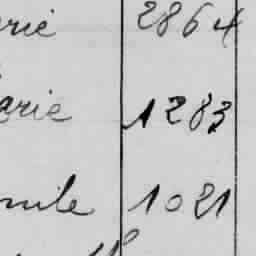 rie 2864
arie 1283
mile 1021